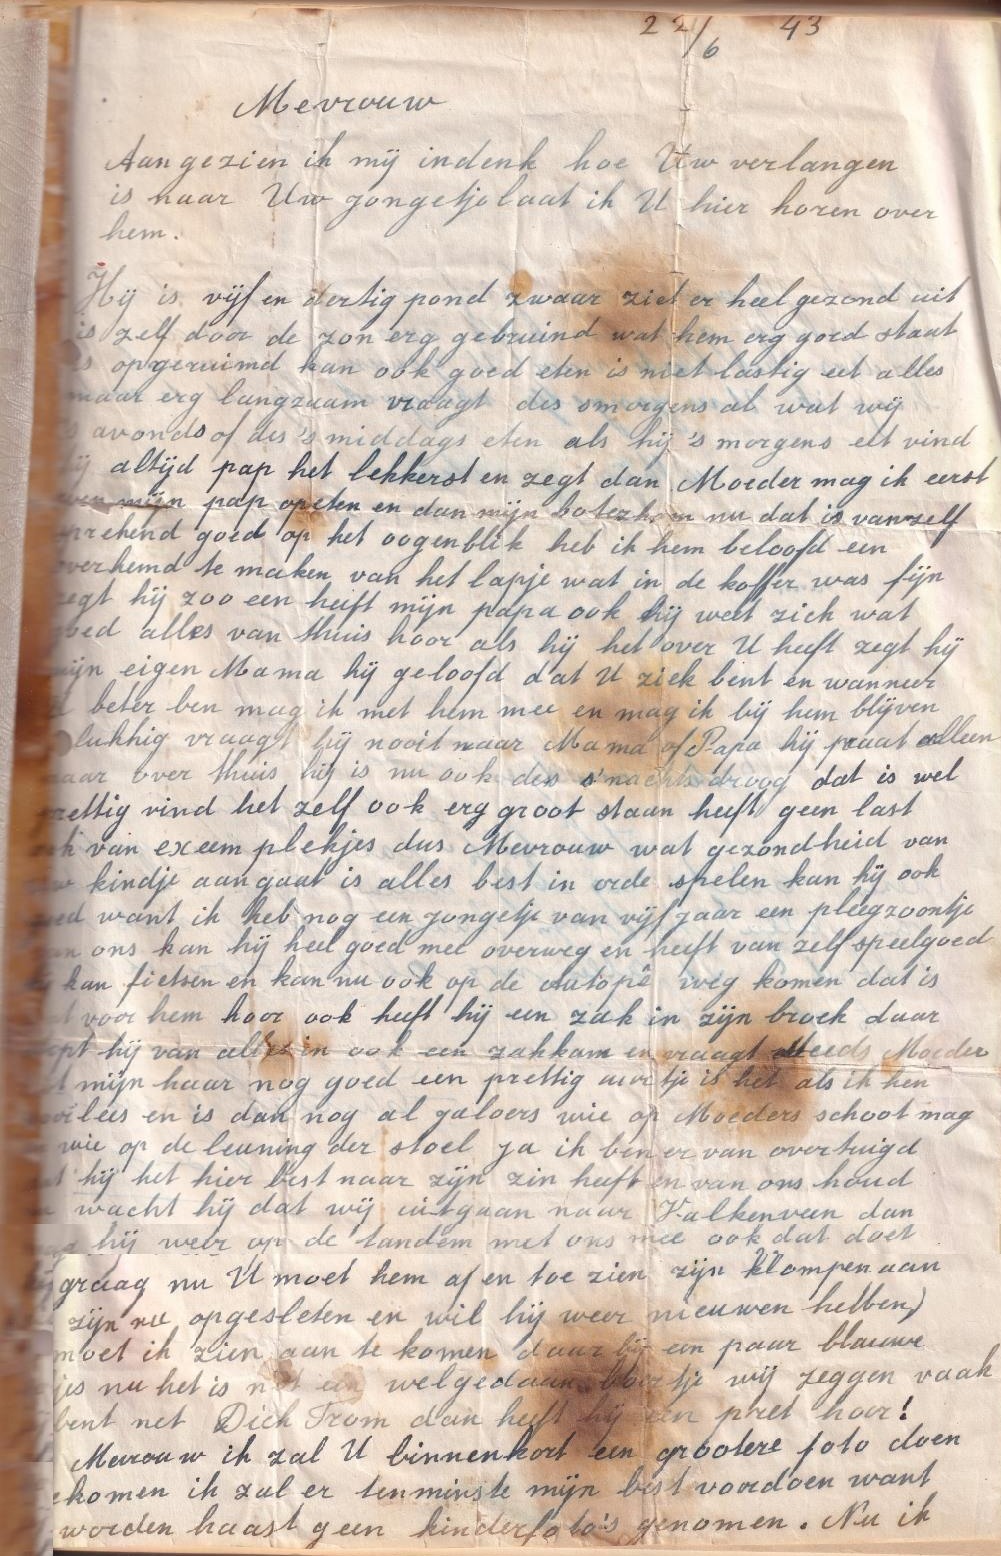 22/6 43
Mevrouw
Aangezien ik mij indenk hoe Uw verlangen
is naar Uw jongetje laat ik U hier horen over
hem.
Hij is vijf en dertig pond zwaar ziet er heel gezond uit
is zelf door de zon erg gebruind wat hem erg goed staat
is opgeruimd kan ook goed eten is niet lastig eet alles
maar erg langzaam vraagt des smorgens al wat wij
avonds of des 's middags eten als hij 's morgens eet vind
hij altijd pap het lekkerst en zegt dan Moeder mag ik eerst
even mijn pap opeten en dan mijn boterham nu dat is vanzelf
sprekend goed op het oogenblik heb ik hem beloofd een
overhemd te maken van het lapje wat in de koffer was fijn
zegt hij zoo een heift mijn papa ook hij weet zich wat
goed alles van thuis hoor als hij het over U heeft zegt hij
mijn eigen Mama hij geloofd dat U ziek bent en wanneer
U beter ben mag ik met hem mee en mag ik bij hem blijven
lukkig vraagt hij nooit naar Mama of Papa hij praat alleen
maar over thuis hij is nu ook des s'nachts droog dat is wel
prettig vind het zelf ook erg groot staan heeft geen last
ook van exeem plekjes dus Mevrouw wat gezondheid van
Uw kindje aangaat is alles best in orde spelen kan hij ook
goed want ik heb nog een jongetje van vijf jaar een pleegzoontje
van ons kan hij heel goed mee overweg en heeft van zelf speelgoed
hij kan fietsen en kan nu ook op de autopê weg komen dat is
wat voor hem hoor ook heeft hij een zak in zijn broek daar
stopt hij van alles in ook een zakkam en vraagt steeds Moeder
zit mijn haar nog goed een prettig uurtje is het als ik hen
voorlees en is dan nog al jaloers wie op Moeders schoot mag
wie op de leuning der stoel ja ik ben er van overtuigd
dat hij het hier best naar zijn zin heeft en van ons houd
wacht hij dat wij uitgaan naar Valkenveen dan
mag hij weer op de tandem met ons mee ook dat doet
hij graag nu U moet hem af en toe zien zijn klompen aan
zijn nu opgesleten en wil hij weer nieuwen hebben)
moet ik zien aan te komen daar bij een paar blauwe
jes nu het is net een welgedaan boertje wij zeggen vaak
bent net Dick Trom dan heeft hij een pret hoor!
Mevrouw ik zal U binnenkort een grootere foto doen
toekomen ik zal er tenminste mijn best voordoen want
worden haast geen kinderfoto's genomen. Nu ik